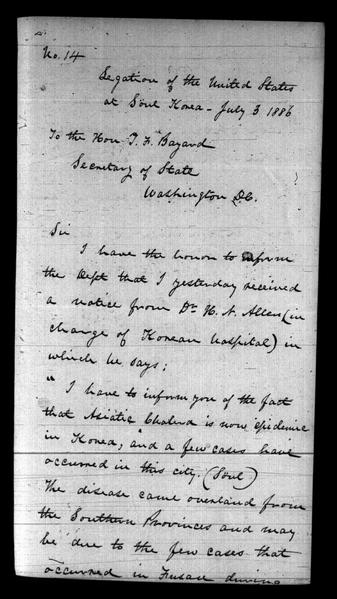 No. 14
Legation of the United States
at Söul Korea - July 3 1886
To the Hon T. F. Bayard
Secretary of State
Washington D.C.
Sir
I have the honor to inform
the Dept that I yesterday received
a notice from Dr H. N. Allen (in
charge of Korean hospital) in
which he says:
" I have to inform you of the fact
that Asiatic Cholera is now epidemic
in Korea, and a few cases have
occurred in this city. (Söul)
The disease came overland from
the Southern Provinces and may
be due to the few cases that
occurred in Fusan during